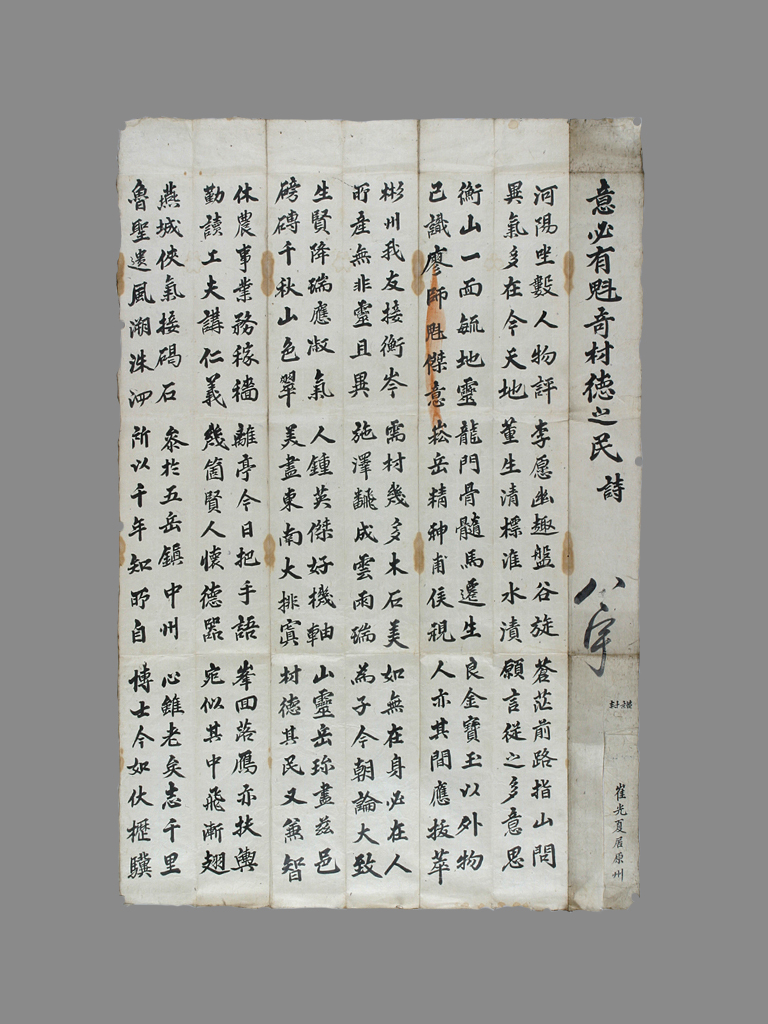 意必有魁奇材德之民 詩
八宇
崔光夏居原州
河陽坐數人物評 李愿幽趣盤谷旋 蒼茫前路指山問
異氣多在今天地 董生清標淮水濆 願言従之多意思
衡山一面毓地靈 龍門骨髓馬遷生 良金寶玉以外物
已識廖師魁傑意 崧岳精神甫侯視 人亦其間應拔萃
彬州我友接衡岑 需材幾多木石美 如無在身必在人
所産無非靈且異 施澤飜成雲雨瑞 為子今朝論大致
生賢降瑞應淑氣 人鍾英傑好機軸 山靈岳珎盡茲邑
磅礴千秋山色翠 美盡東南大排寘 材德其民又兼智
休農事業務稼穡 離亭今日把手語 峯回落鴈亦扶輿
勤讀工夫講仁義 幾箇賢人懷德器 宛似其中飛漸翅
燕城俠氣接碣石 叅於五岳鎮中州 心雖老矣志千里
魯聖遺風溯洙泗 所以千年知所自 博士今如伏櫪驥